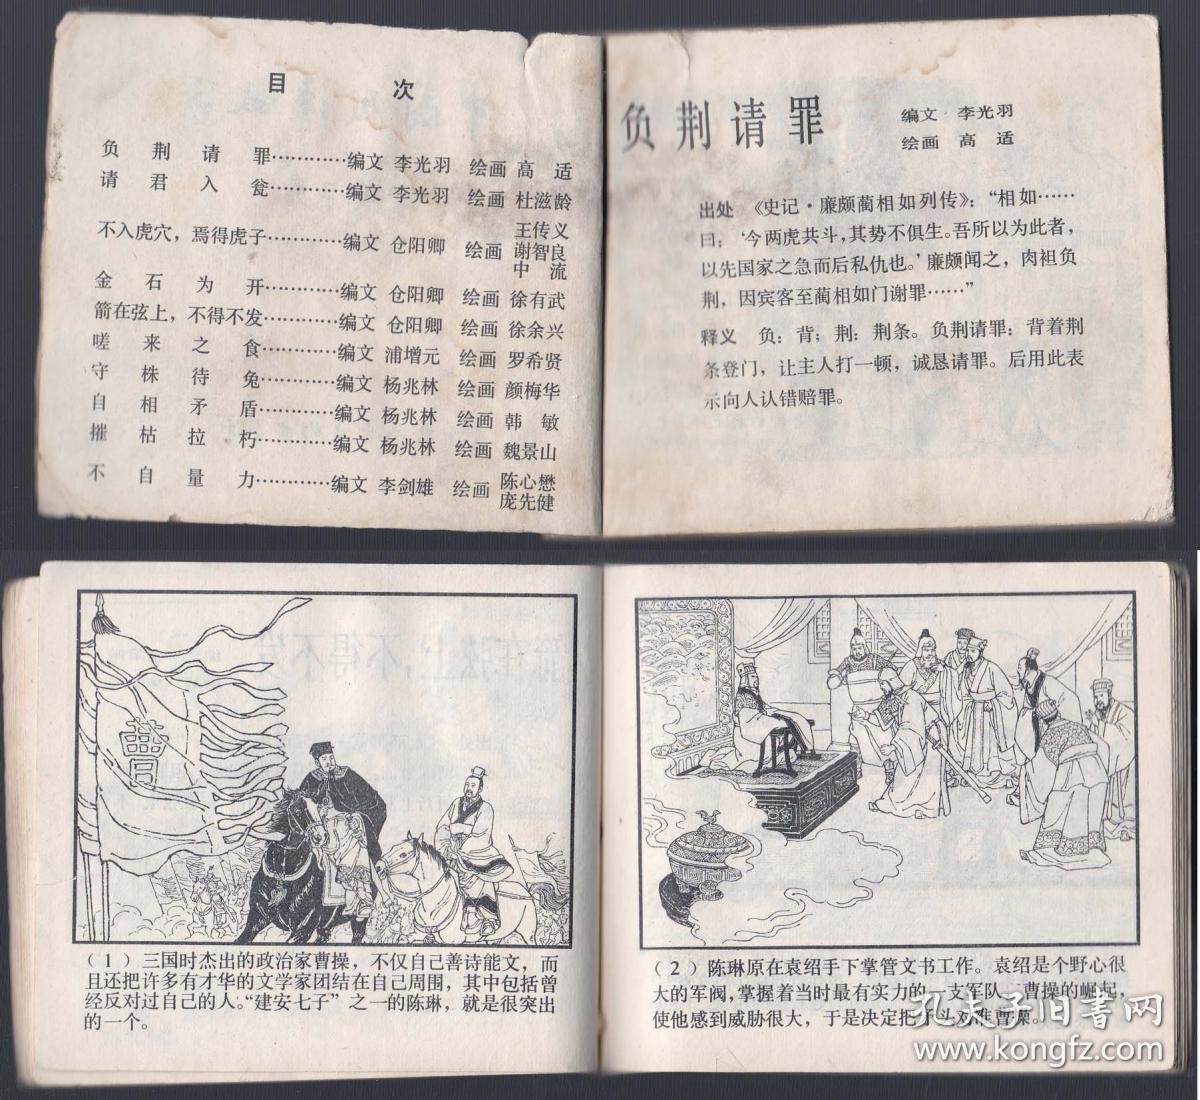 目 次
负荆请罪…………编文 李光羽 绘画 高 适
请君入瓮…………编文 李光羽 绘画 杜滋龄
不入虎穴，焉得虎子…………编文 仓阳卿 绘画 王传义 谢智良 中 流
金石为开…………编文 仓阳卿 绘画 徐有武
箭在弦上，不得不发…………编文 仓阳卿 绘画 徐余兴
嗟来之食…………编文 浦增元 绘画 罗希贤
守株待兔…………编文 杨兆林 绘画 颜梅华
自相矛盾…………编文 杨兆林 绘画 韩 敏
摧枯拉朽…………编文 杨兆林 绘画 魏景山
不自量力…………编文 李剑雄 绘画 陈心懋 庞先健
负荆请罪
编文 李光羽
绘画 高 适
出处 《史记·廉颇蔺相如列传》：“相如……
曰：‘今两虎共斗，其势不俱生。吾所以为此者，
以先国家之急而后私仇也。’廉颇闻之，肉袒负
荆，因宾客至蔺相如门谢罪……”
释义 负：背；荆：荆条。负荆请罪：背着荆
条登门，让主人打一顿，诚恳请罪。后用此表
示向人认错赔罪。
曹
（1）三国时杰出的政治家曹操，不仅自己善诗能文，而
且还把许多有才华的文学家团结在自己周围，其中包括曾
经反对过自己的人。“建安七子”之一的陈琳，就是很突出
的一个。
（2）陈琳原在袁绍手下掌管文书工作。袁绍是个野心很
大的军阀，掌握着当时最有实力的一支军队。曹操的崛起，
使他感到威胁很大，于是决定把矛头对准曹操。
孔夫子旧书网
www.kongfz.com